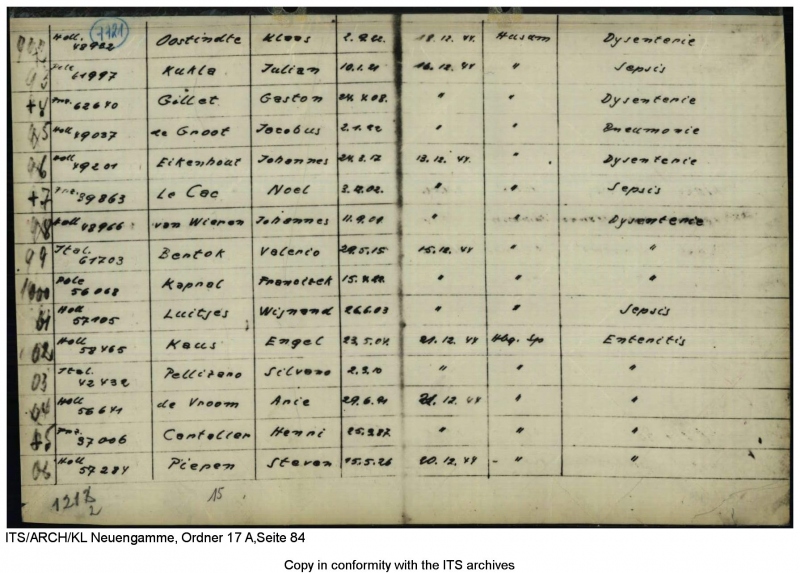 1121
992 Holl. 48922 Oostindte Klaas 2.9.22. 18.12.44. Husum Dysenterie
93 Pole 61997 Kukla Julian 10.1.21 16.12.44 " Sepsis
+4 Frz. 62640 Gillet Gaston 24.4.08. " " Dysenterie
95 Holl 49037 de Groot Jacobus 2.1.22 " " Pneumonie
96 Holl 49201 Eikenhout Johannes 24.2.17 13.12.44. " Dysenterie
+7 Frz. 39863 Le Cac Noel 3.12.02. " " Sepsis
98 Holl 48966 van Wieren Johannes 11.9.01 " " Dysenterie
99 Ital. 61703 Bentok Valerio 29.5.15 15.12.44 " "
1000 Pole 56068 Kapral 15. " " "
01 Holl 57105 Luitjes Wijnand 26.6.03 " " Sepsis
02 Holl 58465 Kaus Engel 23.5.04. 21.12.44 Hbg. Sp Enteritis
03 Ital. 42432 Pellizaro Silvano 2.2.10 " " "
04 Holl 56641 de Vroom Arie 29.6.21 21.12.44 " "
+5 Frz. 37006 Cantelier Henri 25.9.87. " " "
06 Holl 57284 Piepen Steven 15.5.26 20.12.44 - " "
1218 2 15
ITS/ARCH/KL Neuengamme, Ordner 17 A,Seite 84
Copy in conformity with the ITS archives